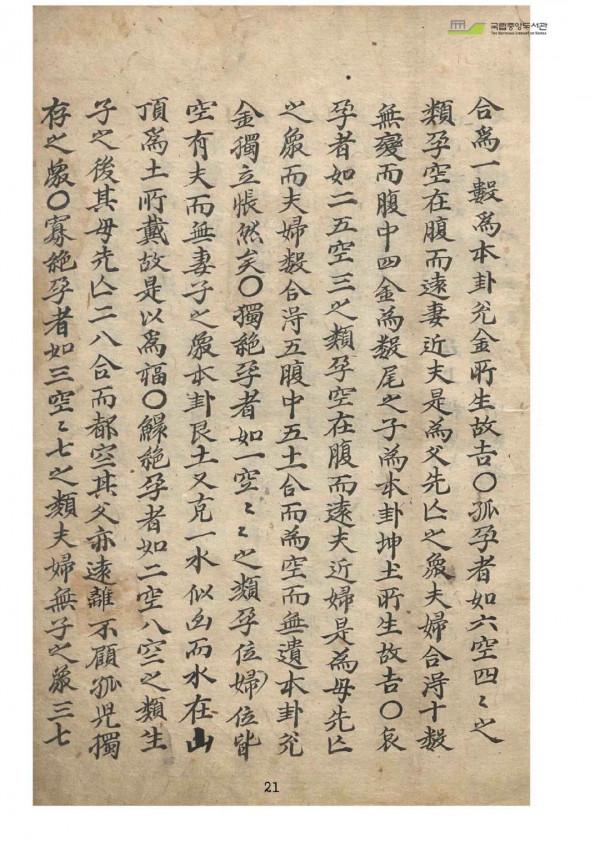 국립중앙도서관
THE NATIONAL LIBRARY OF KOREA
合爲一數爲本卦兌金所生故吉〇孤孕者如六空四〻之
類孕空在腹而遠妻近夫是為父先亡之象夫婦合淂十數
無變而腹中四金為數尾之子為本卦坤土所生故吉〇哀
孕者如二五空三之類孕空在腹而遠夫近婦是為母先亡
之象而夫婦數合淂五腹中五土合而為空而無遺本卦兌
金獨立悵然矣〇獨絶孕者如一空〻〻之類孕位婦位皆
空有夫而無妻子之象本卦艮土又克一水似凶而水在山
頂爲土所戴故是以爲福〇鰥絶孕者如二空八空之類生
子之後其母先亡二八合而都空其父亦遠離不顧孤児獨
存之象〇寡絶孕者如三空〻七之類夫婦無子之象三七
21